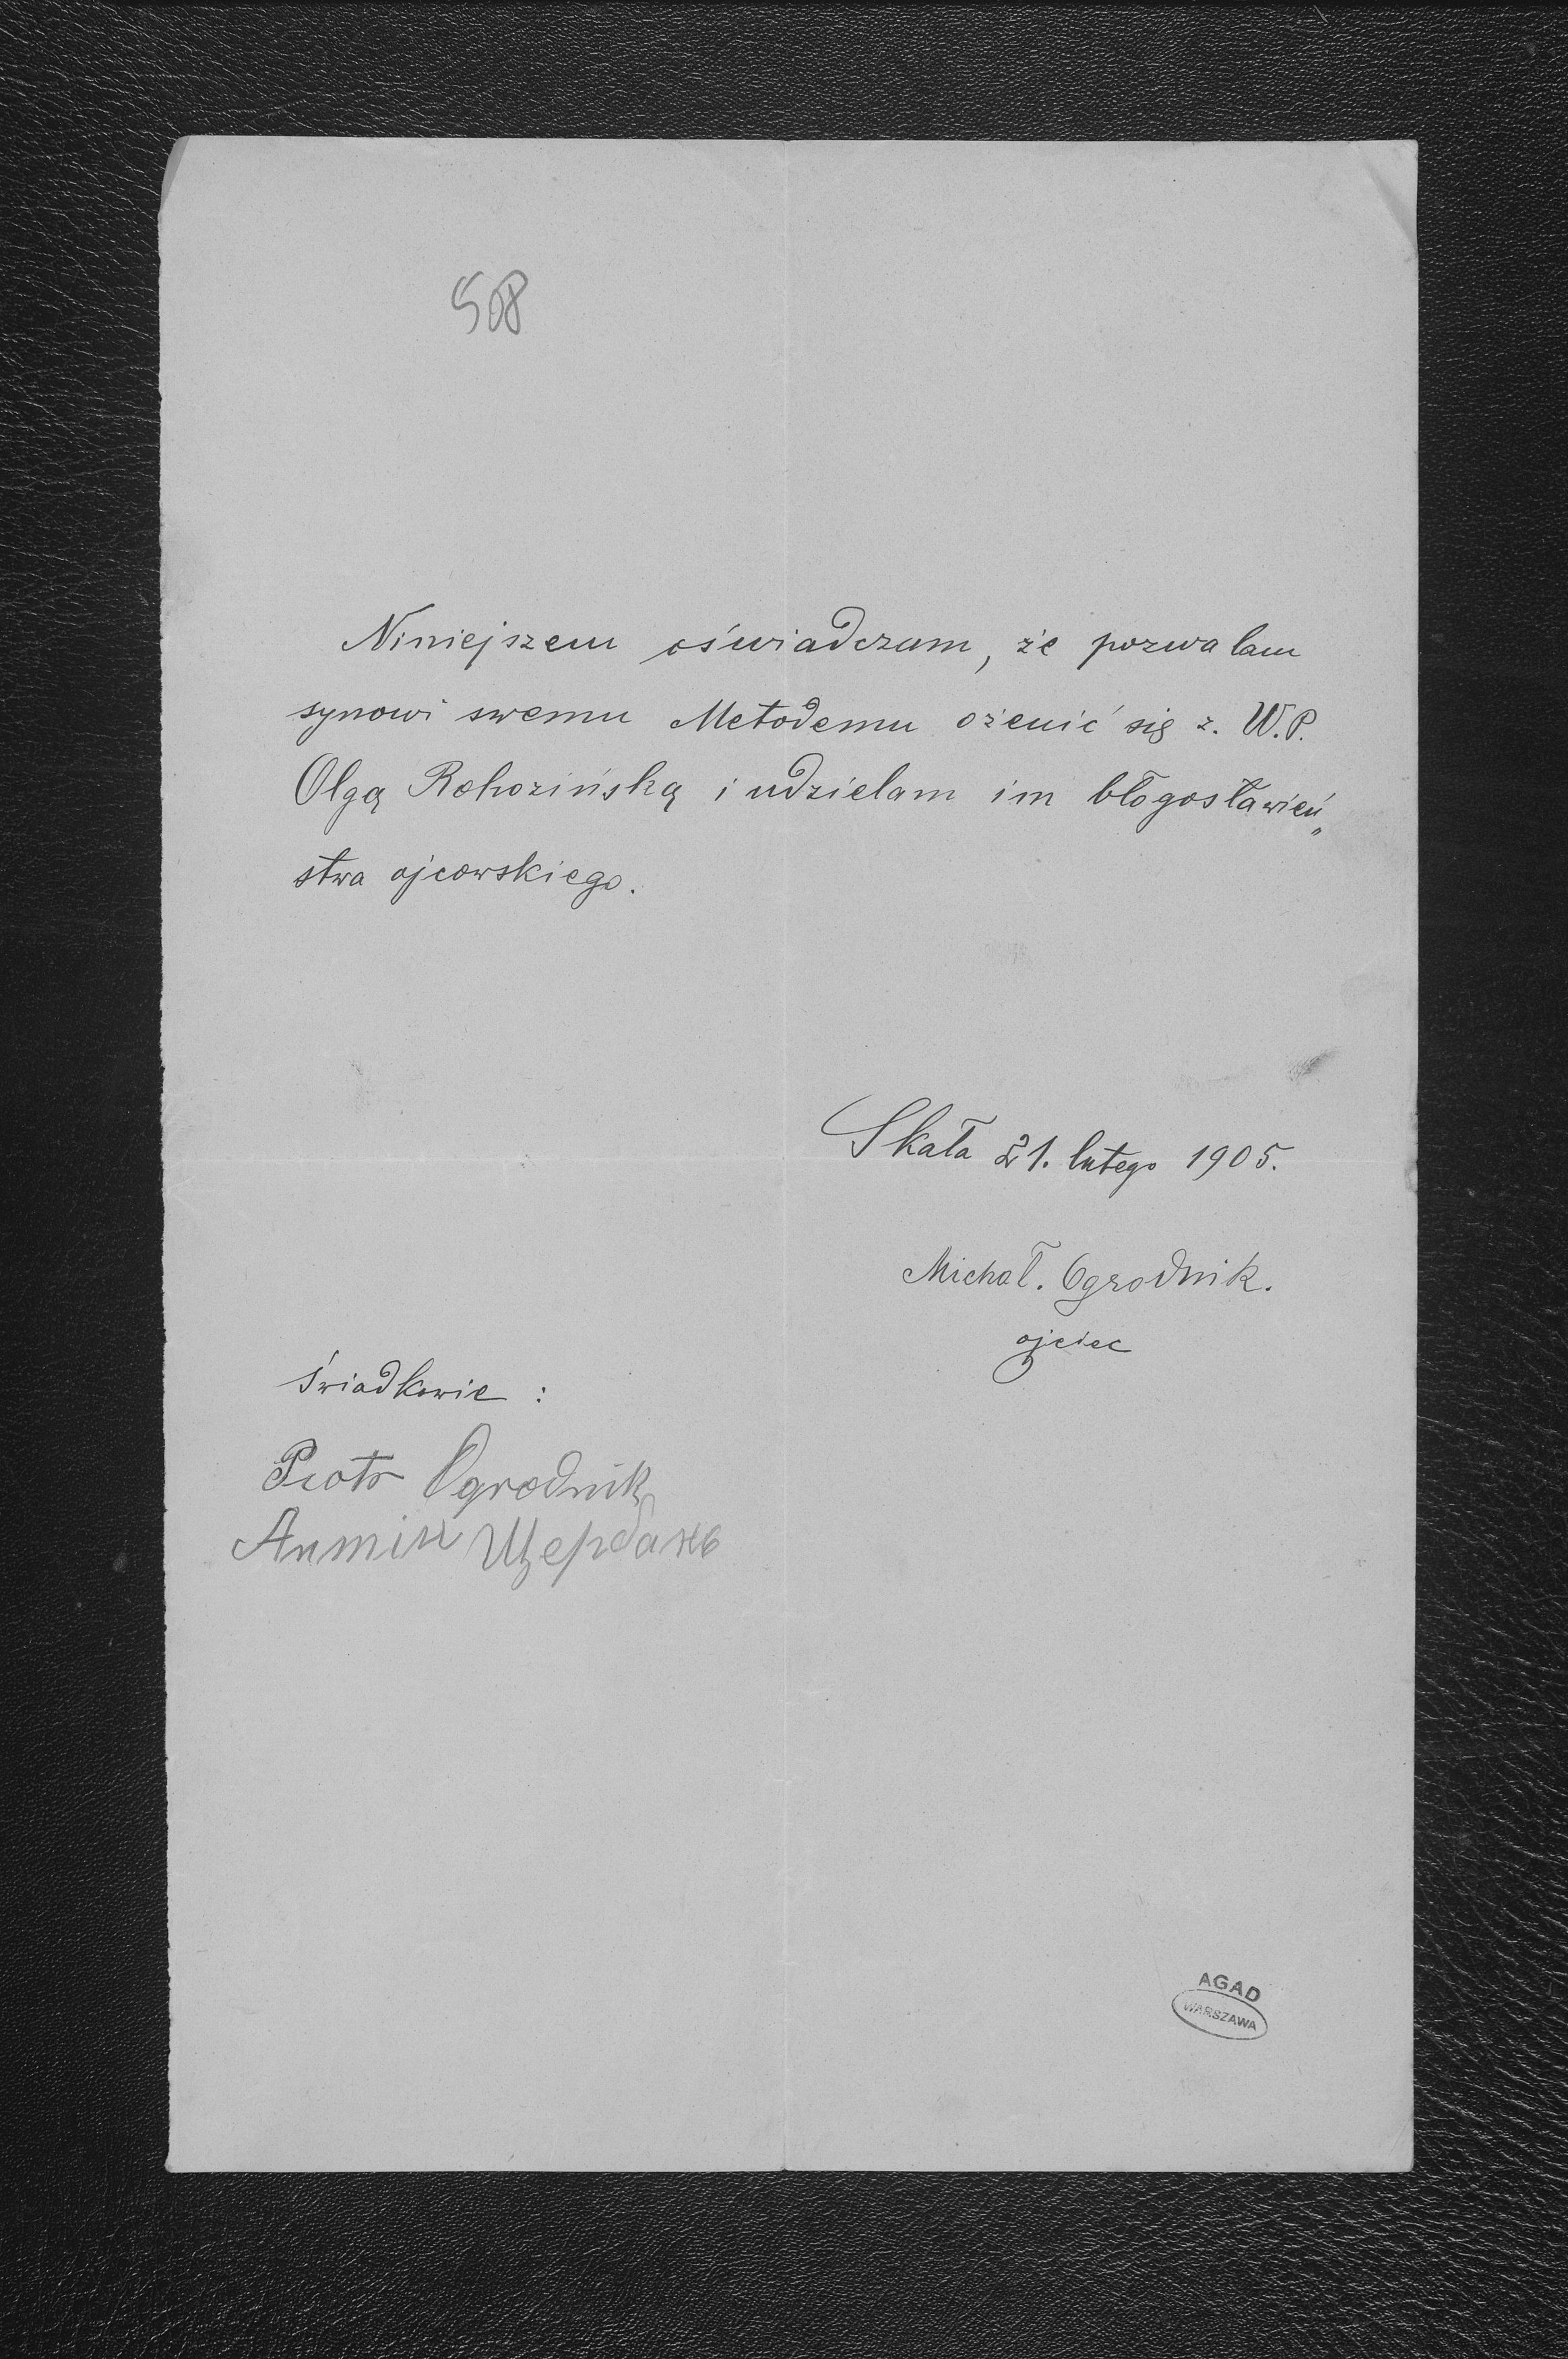 508
Niniejszem oświadczam, że pozwalam
synowi swemu Metodemu ożenić się z. W.P.
Olgą Rohozińską i udzielam im błogosławień„
stwa ojcowskiego.
Skała 21. lutego 1905.
Michał. Ogrodnik.
ojciec
świadkowie :
Piotr Ogrodnik
Антін Щербань
AGAD
WARSZAWA